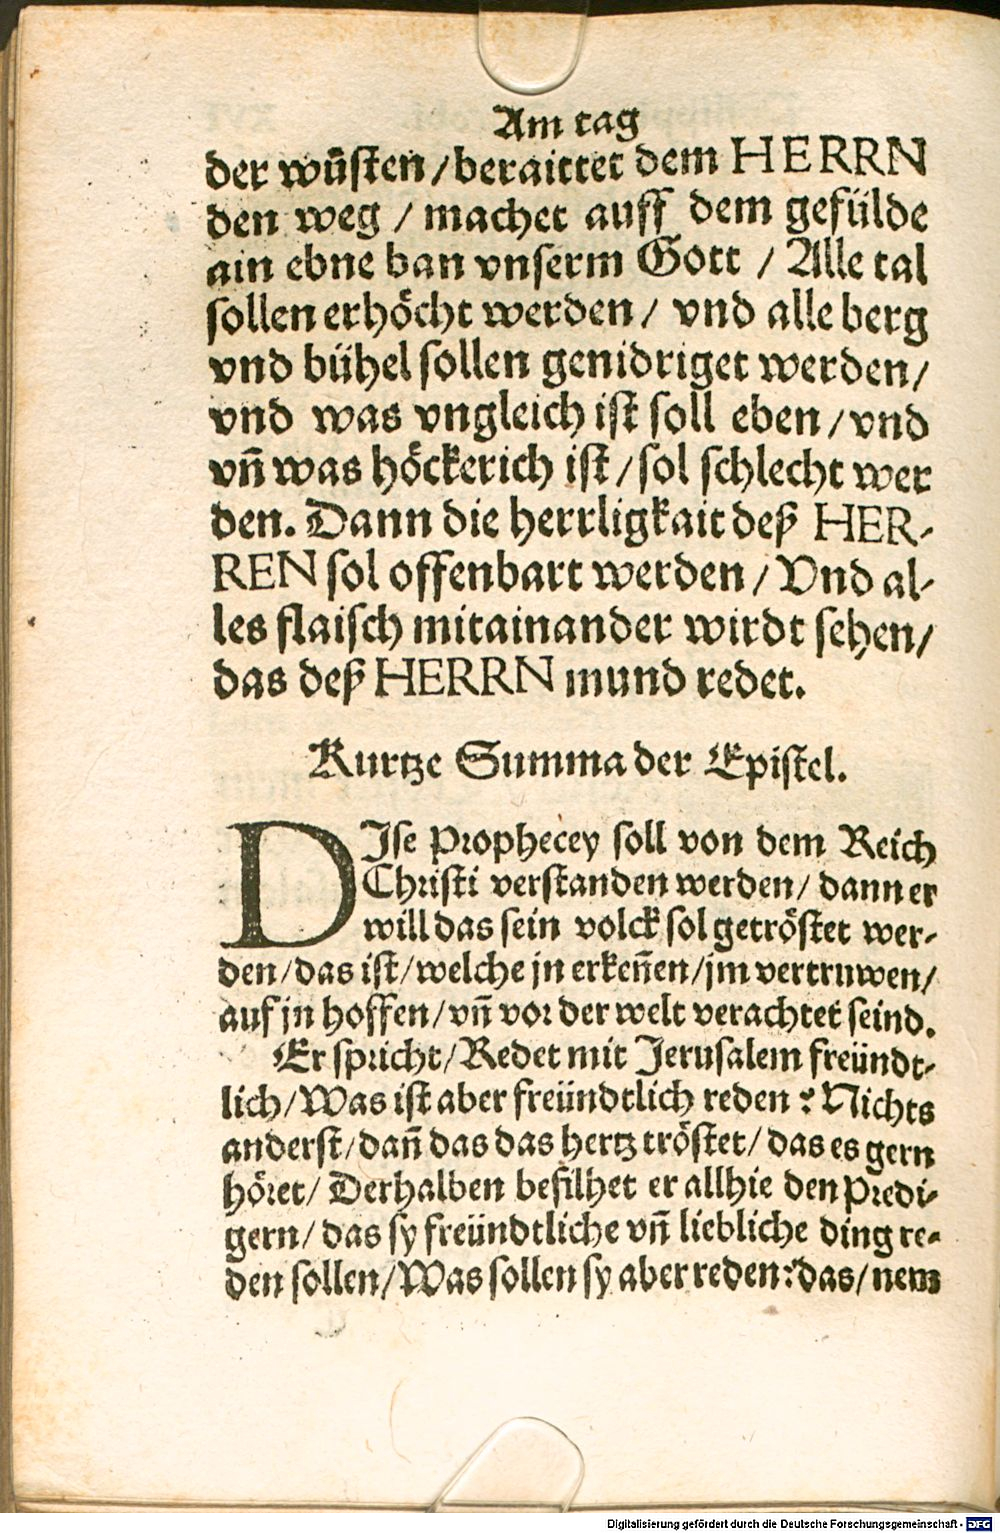 Am tag
der wüſten / beraittet dem HERRN
den weg / machet auff dem gefülde
ain ebne ban vnſerm Gott / Alle tal
ſollen erhöcht werden / vnd alle berg
vnd bühel ſollen genidriget werden /
vnd was vngleich iſt ſoll eben / vnd
vñ was höckerich iſt / ſol ſchlecht wer
den. Dann die herrligkait deß HER-
REN ſol offenbart werden / Vnd al-
les flaiſch mitainander wirdt ſehen /
das deß HERRN mund redet.
Kurtze Summa der Epiſtel.
DIſe Prophecey ſoll von dem Reich
Chriſti verſtanden werden / dann er
will das ſein volck ſol getröſtet wer-
den / das iſt / welche jn erkeñen / jm vertruwen /
auf jn hoffen / vñ vor der welt verachtet ſeind.
Er ſpricht / Redet mit Jeruſalem freündt-
lich / Was iſt aber freündtlich reden? Nichts
anderſt / dañ das das hertz tröſtet / das es gern
höret / Derhalben befilhet er allhie den Predi-
gern / das ſy freündtliche vñ liebliche ding re-
den ſollen / Was ſollen ſy aber reden? das / nem
Digitalisierung gefördert durch die Deutsche Forschungsgemeinschaft - DFG